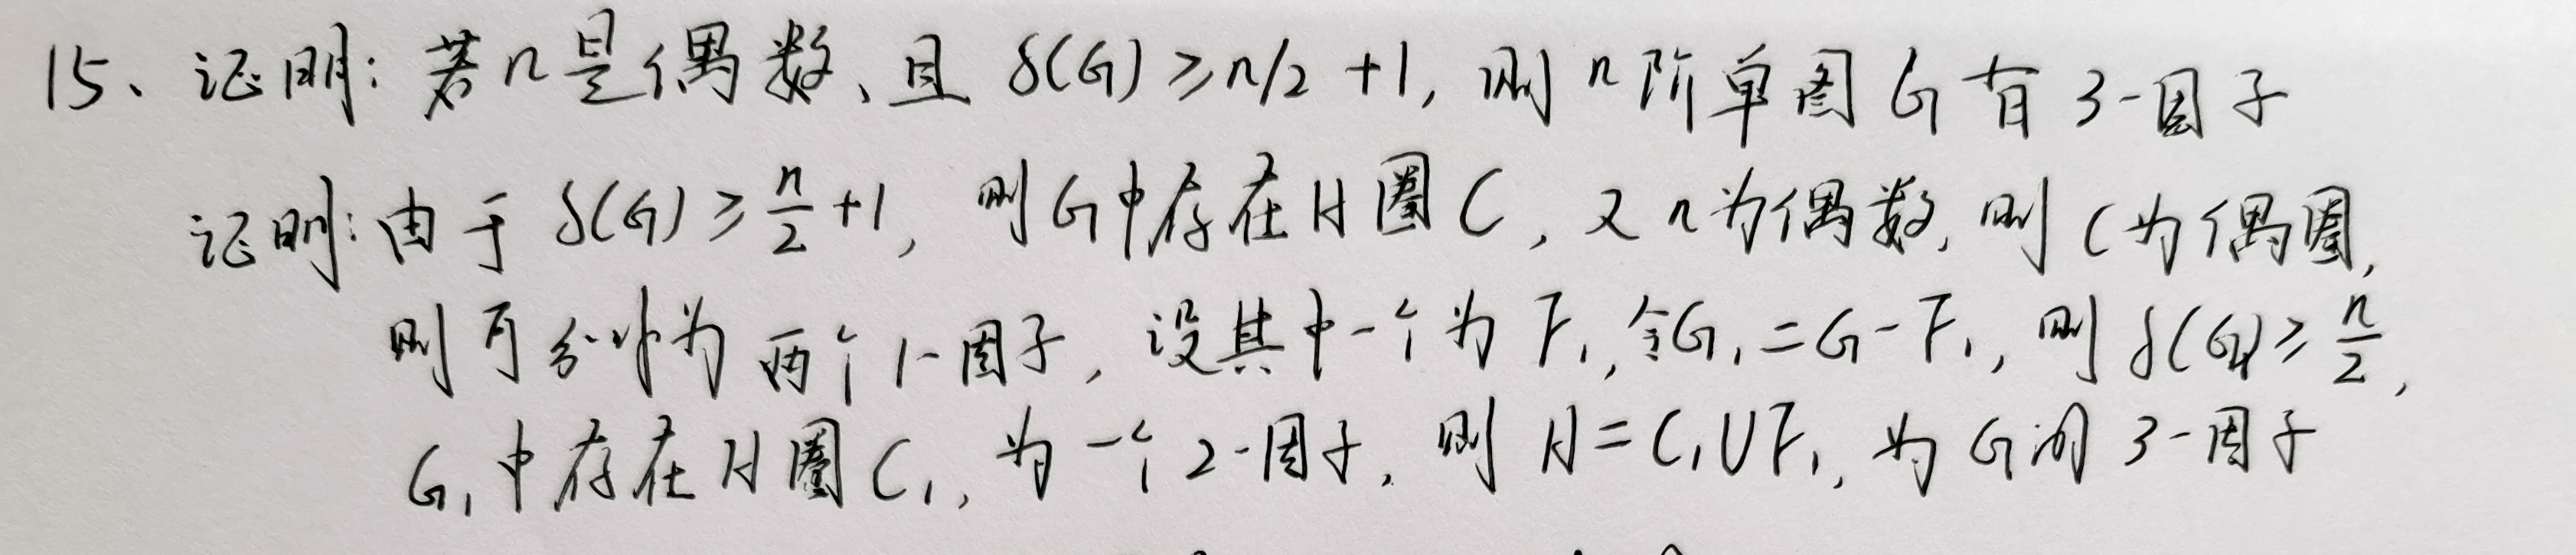 15、证明：若n是偶数、且 δ(G)≥n/2+1, 则n阶单图G有3-因子
证明：由于 δ(G)≥n/2+1, 则G中存在H圈C，又n为偶数, 则C为偶圈,
则可分为两个1-因子，设其中一个为F₁,令G₁=G-F₁, 则δ(G₁)≥n/2,
G₁中存在H圈C₁, 为一个2-因子, 则H=C₁∪F₁, 为G的3-因子